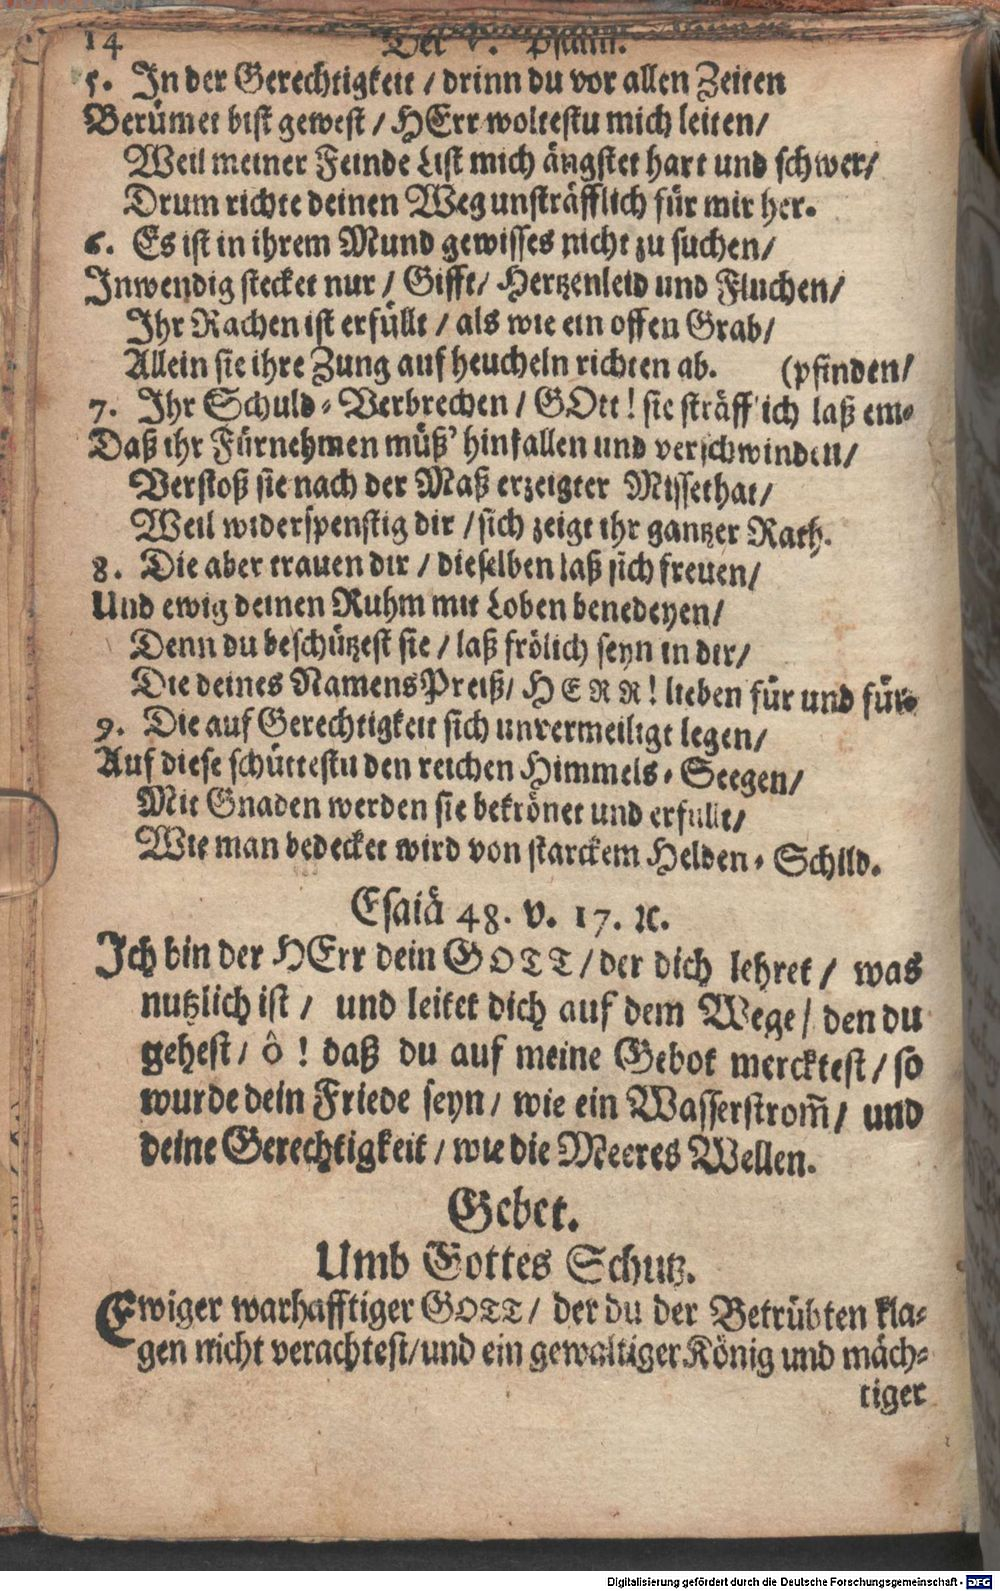 14 Der V. Psalm.
5. In der Gerechtigkeit / drinn du vor allen Zeiten
Berümet bist gewest / HErr woltestu mich leiten /
Weil meiner Feinde List mich ängstet hart und schwer /
Drum richte deinen Weg unsträfflich für mir her.
6. Es ist in ihrem Mund gewisses nicht zu suchen /
Inwendig stecket nur / Gifft / Hertzenleid und Fluchen /
Ihr Rachen ist erfüllt / als wie ein offen Grab /
Allein sie ihre Zung auf heucheln richten ab. (pfinden /
7. Ihr Schuld-Verbrechen / GOtt! sie sträfflich laß em-
Daß ihr Fürnehmen müß' hinfallen und verschwinden /
Verstoß sie nach der Maß erzeigter Missethat /
Weil widerspenstig dir / sich zeigt ihr gantzer Rath.
8. Die aber trauen dir / dieselben laß sich freuen /
Und ewig deinen Ruhm mit Loben benedeyen /
Denn du beschützest sie / laß frölich seyn in dir /
Die deines Namens Preiß / HERR! lieben für und für.
9. Die auf Gerechtigkeit sich unvermeiligt legen /
Auf diese schüttestu den reichen Himmels-Seegen /
Mit Gnaden werden sie bekrönet und erfüllt /
Wie man bedecket wird von starckem Helden-Schild.
Esaiä 48. v. 17. ꝛc.
Ich bin der HErr dein GOTT / der dich lehret / was
nutzlich ist / und leitet dich auf dem Wege / den du
gehest / ô! daß du auf meine Gebot mercktest / so
wurde dein Friede seyn / wie ein Wasserstrom̃ / und
deine Gerechtigkeit / wie die Meeres Wellen.
Gebet.
Umb Gottes Schutz.
Ewiger warhafftiger GOTT / der du der Betrübten kla-
gen nicht verachtest / und ein gewaltiger König und mäch-
tiger
Digitalisierung gefördert durch die Deutsche Forschungsgemeinschaft - DFG